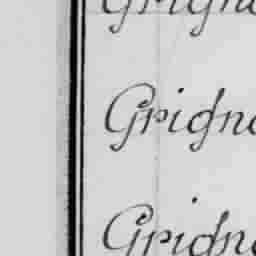 Grigno
Grigno
Grigno